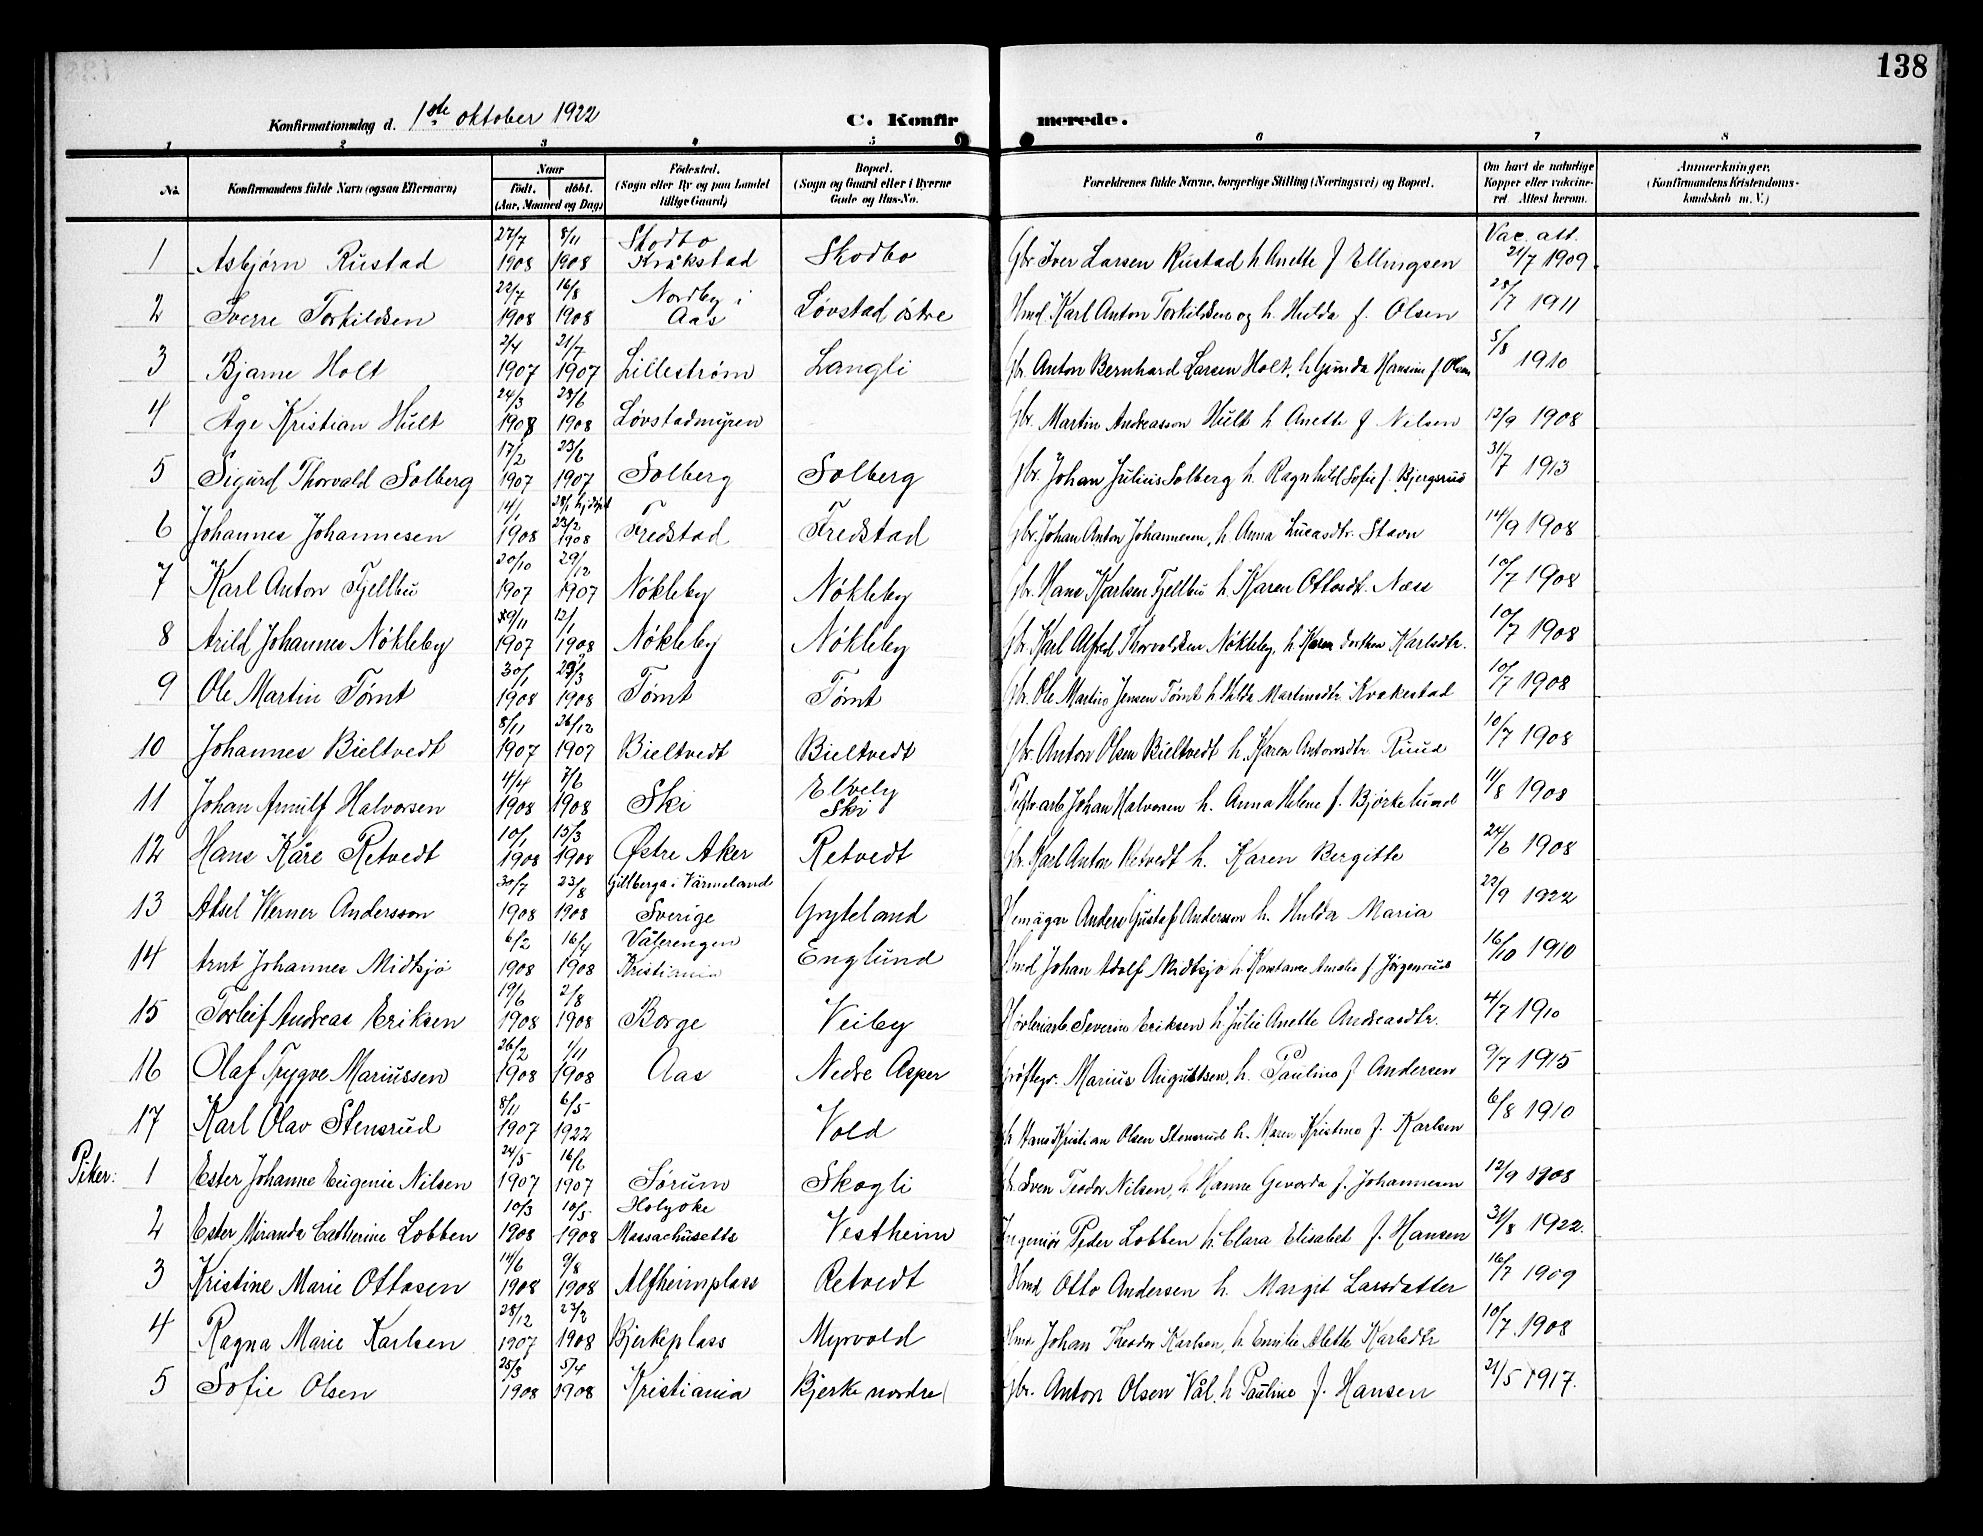 138
Konfirmationsdag d. 1ste oktober 1922 C. Konfirmerede.
1 2 3 4 5 6 7 8
No. Konfirmandens fulde Navn (ogsaa Efternavn) Naar født. døbt. (Aar, Maaned og Dag) Fødested. (Sogn eller By og paa Landet tillige Gaard) Bopæl. (Sogn og Gaard eller i Byerne Gade og Hus-No. Forældrenes fulde Navne, borgerlige Stilling (Næringsvei) og Bopæl. Om havt de naturlige Kopper eller vakcineret. Attest herom. Anmærkninger. (Konfirmandens Kristendomskundskab m. V.)
1 Asbjørn Rustad 27/7 1908 8/11 1908 Skodbo Kråkstad Skodbo Gbr. Iver Larsen Rustad h Anette f Ellingsen Vac. att. 21/7 1909
2 Sverre Torkildsen 22/7 1908 16/8 1908 Nordby i Aas Løvstad østre Hmd. Karl Anton Torkildsen og h. Hulda f. Olsen 28/7 1911
3 Bjarne Holt 2/4 1907 21/7 1907 Lillestrøm Langli Gbr. Anton Bernhard Larsen Holt, h. Gunda f. Olsen 5/8 1910
4 Åge Kristian Hult 24/3 1908 28/6 1908 Løvstadmyren Gbr. Martin Andreasson Hult h Anette f Nilsen 12/9 1908
5 Sigurd Thorvald Solberg 17/2 1907 23/6 1907 Solberg Solberg Gbr. Johan Julius Solberg h. Ragnhild Sofie f. Bjergsrud 31/7 1913
6 Johannes Johannesen 14/1 1908 28/1 hj.døpt 23/2 1908 Fredstad Fredstad Gbr. Johan Anton Johannesen, h. Anna Lucasdtr. Stavn 14/9 1908
7 Karl Anton Fjellbu 20/10 1907 29/12 1907 Nøkleby Nøkleby Gbr. Hans Karlsen Fjellbu h. Karen Ottosdt. Næss 10/7 1908
8 Arild Johannes Nøkleby 1907 12/1 1908 Nøkleby Nøkleby Gbr. Karl Alfred Thorvaldsen Nøkleby, h Karen Dorthea Karlsdtr. 10/7 1908
9 Ole Martin Tømt 30/1 1908 29/3 1908 Tømt Tømt Gbr. Ole Martin Jensen Tømt h. Hilda Martinsdtr Krakestad 10/7 1908
10 Johannes Bieltvedt 8/11 1907 26/12 1907 Bieltvedt Bieltvedt Gbr. Anton Olsen Bieltvedt h. Karen Antonsdtr. Ruud 10/7 1908
11 Johan Arnulf Halvorsen 4/4 1908 7/6 1908 Ski Elvely Ski Teglv.arb. Johan Halvorsen h. Anna Helene f. Bjørkelund 11/8 1908
12 Hans Kåre Retvedt 10/1 1908 15/3 1908 Østre Aker Retvedt Gbr. Karl Anton Retvedt h. Karen Bergitte 24/6 1908
13 Aksel Werner Andersson 30/7 1908 23/8 1908 Gillberga i Värmeland Sverige Gryteland Hemägar Anders Gustaf Andersson h. Hulda Maria 22/9 1922
14 Arnt Johannes Midtsjø 6/2 1908 16/4 1908 Vålerengen Kristiania Englund Hmd Johan Adolf Midtsjø h. Konstanse Amalie f Jørgensrud 16/10 1910
15 Torleif Andreas Eriksen 19/6 1908 2/8 1908 Borge Veiby Høvleriarb. Severin Eriksen h. Julie Anette Andreasdtr. 4/7 1910
16 Olaf Trygve Mariussen 26/2 1908 1/11 1908 Aas Nedre Asper Grøftegr. Marius Augustsen, h. Pauline f Andersen 9/7 1915
17 Karl Olav Stensrud 8/11 1907 6/5 1922 Vold Hans Kristian Olsen Stensrud h. Maren Kristine f. Karlsen 6/8 1910
Piker: 1 Ester Johanne Eugenie Nilsen 24/5 1907 16/6 1907 Sørum Skogli Gbr. Sven Teodor Nilsen, h. Hanne Gevorda f. Johannesen 12/9 1908
2 Ester Miranda Catherine Lobben 10/3 1908 10/5 1908 Holyoke Massachusetts Vestheim Ingeniør Peder Lobben h. Clara Elisabet f. Hansen 31/8 1922.
3 Kristine Marie Ottosen 14/6 1908 9/8 1908 Alfheimplass Retvedt Hmd Otto Andersen h. Margit Larsdatter 16/7 1909
4 Ragna Marie Karlsen 28/12 1907 23/2 1908 Bjerkeplass Myrvold Hmd Johan Theodor Karlsen, h. Emilie Alette Karlsdtr 10/7 1908
5 Sofie Olsen 25/3 1908 5/4 1908 Kristiania Bjerke nordre Gbr. Anton Olsen Vål. h. Pauline f. Hansen 21/5 1917.